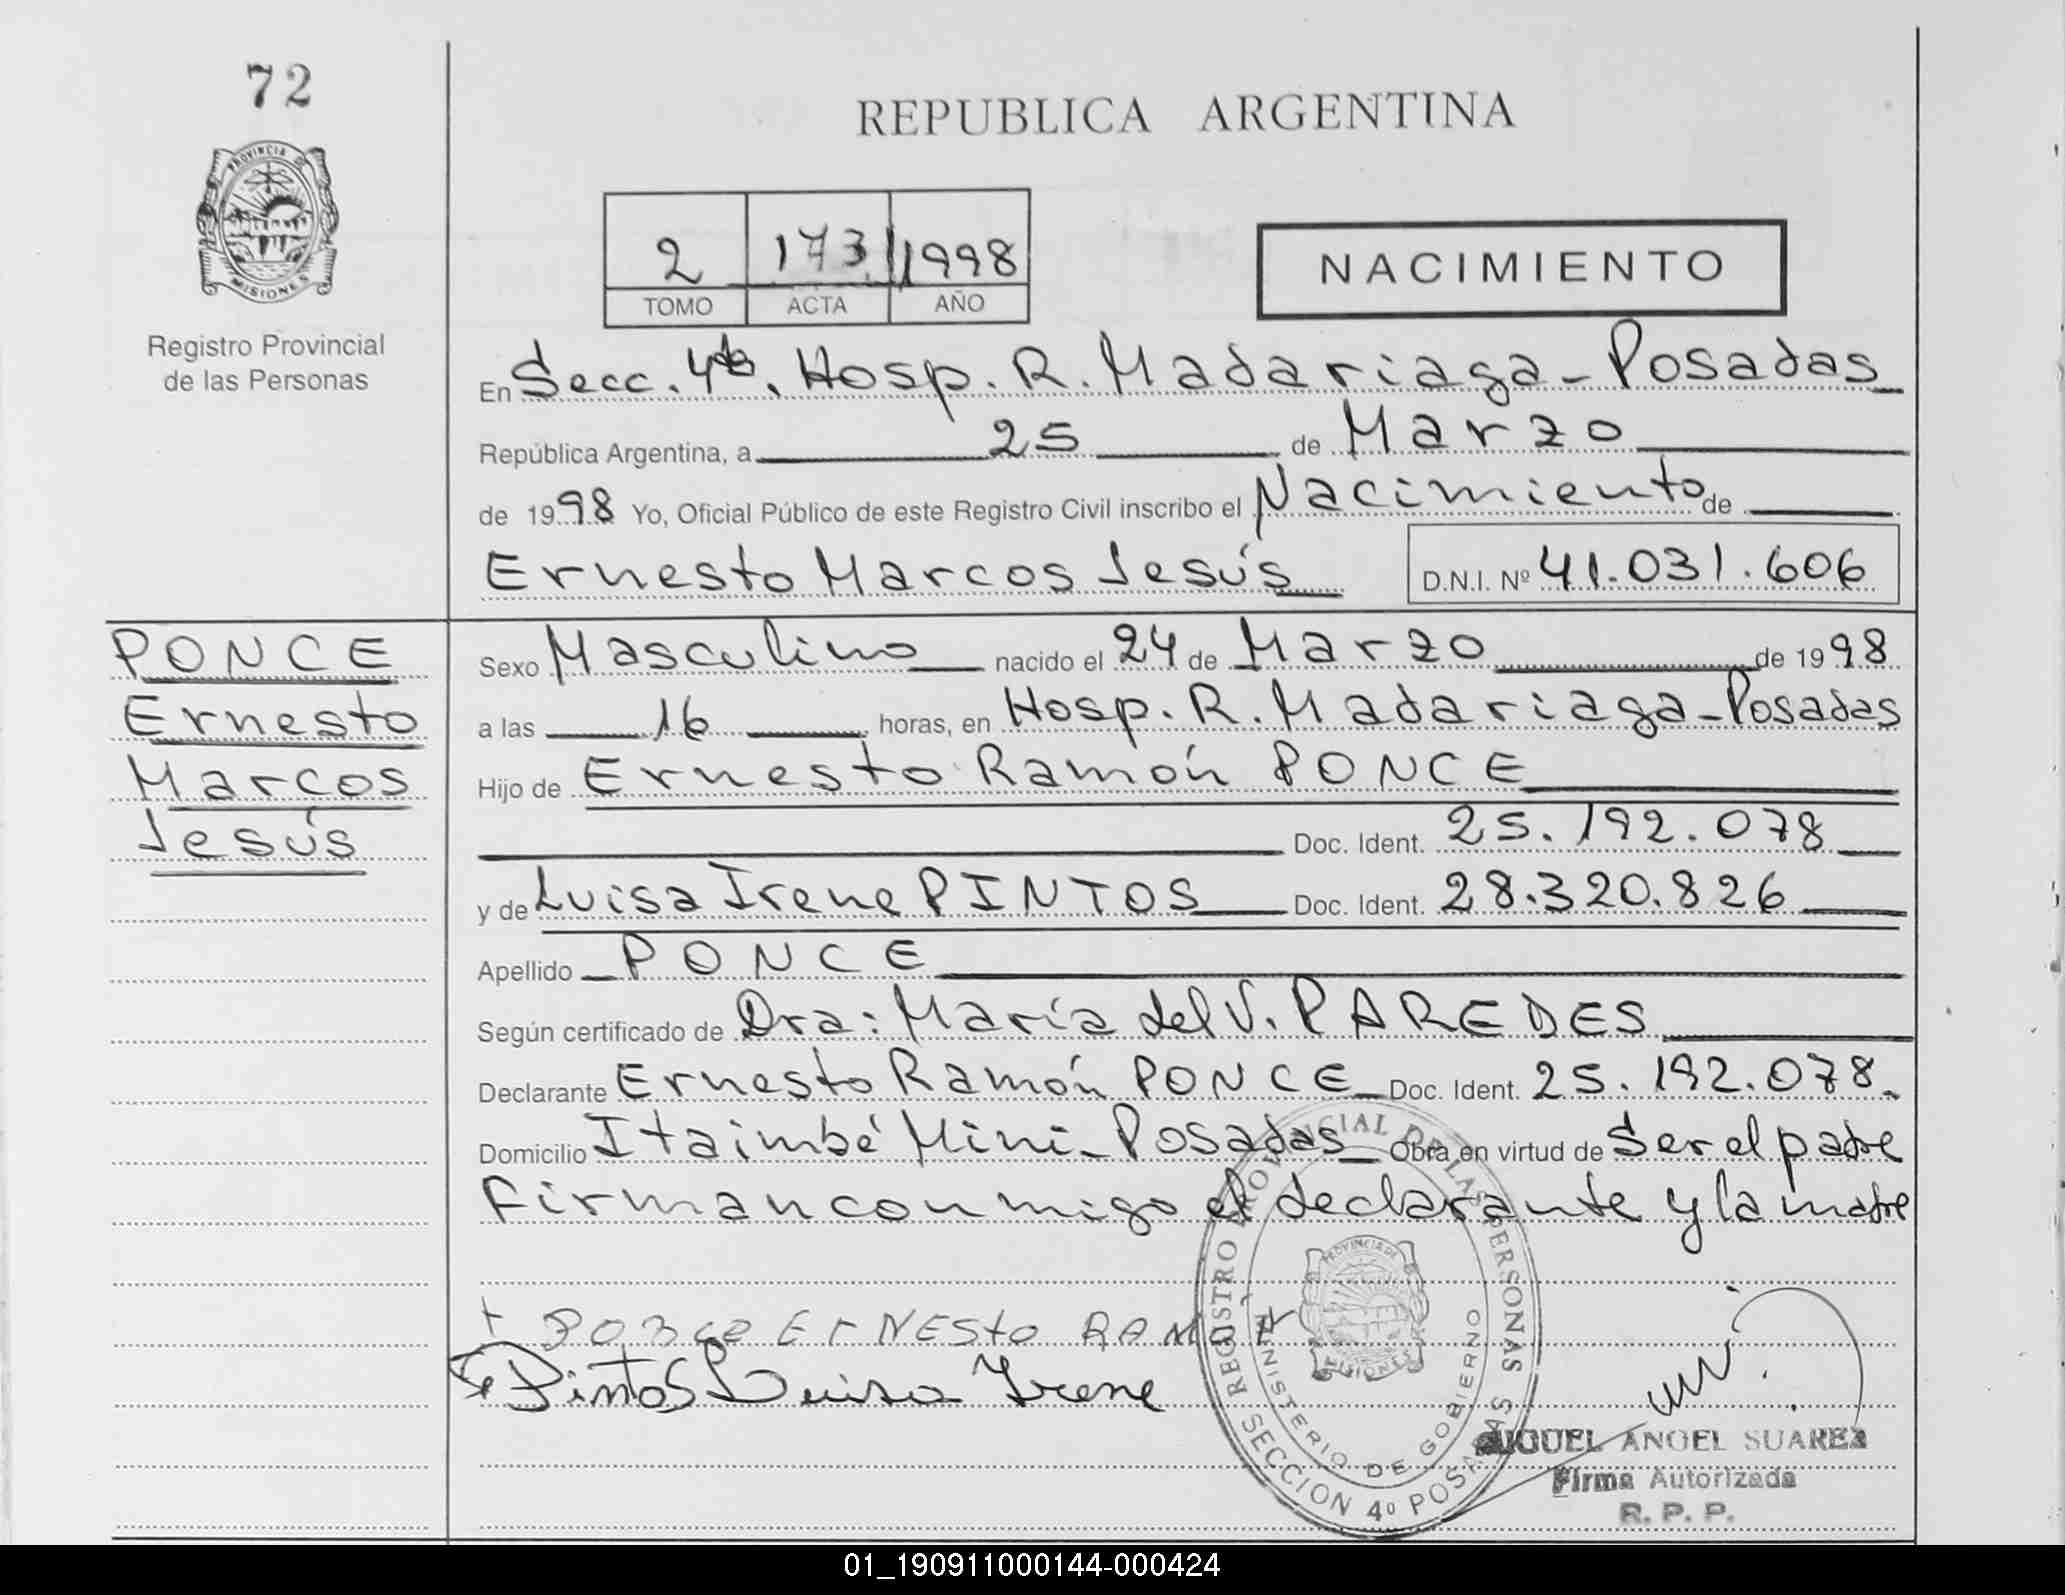 72
PROVINCIA DE
MISIONES
Registro Provincial
de las Personas
REPUBLICA ARGENTINA
2 173 1998
TOMO ACTA AÑO
NACIMIENTO
En Secc. 4ta. Hosp. R. Madariaga - Posadas
República Argentina, a 25 de Marzo
de 1998 Yo, Oficial Público de este Registro Civil inscribo el Nacimiento de
Ernesto Marcos Jesús D.N.I. Nº 41.031.606
PONCE
Ernesto
Marcos
Jesús
Sexo Masculino nacido el 24 de Marzo de 1998
a las 16 horas, en Hosp. R. Madariaga - Posadas
Hijo de Ernesto Ramón PONCE
Doc. Ident. 25.192.078
y de Luisa Irene PINTOS Doc. Ident. 28.320.826
Apellido PONCE
Según certificado de Dra: María del V. PAREDES
Declarante Ernesto Ramón PONCE Doc. Ident. 25.192.078
Domicilio Itaimbé Mini - Posadas Obra en virtud de Ser el padre
Firman conmigo el declarante y la madre
+ Ponce Ernesto
Pintos Luisa Irene
REGISTRO PROVINCIAL DE LAS PERSONAS
MINISTERIO DE GOBIERNO
PROVINCIA DE
MISIONES
SECCION 4º POSADAS
MIGUEL ANGEL SUAREZ
Firma Autorizada
R. P. P.
01_190911000144-000424